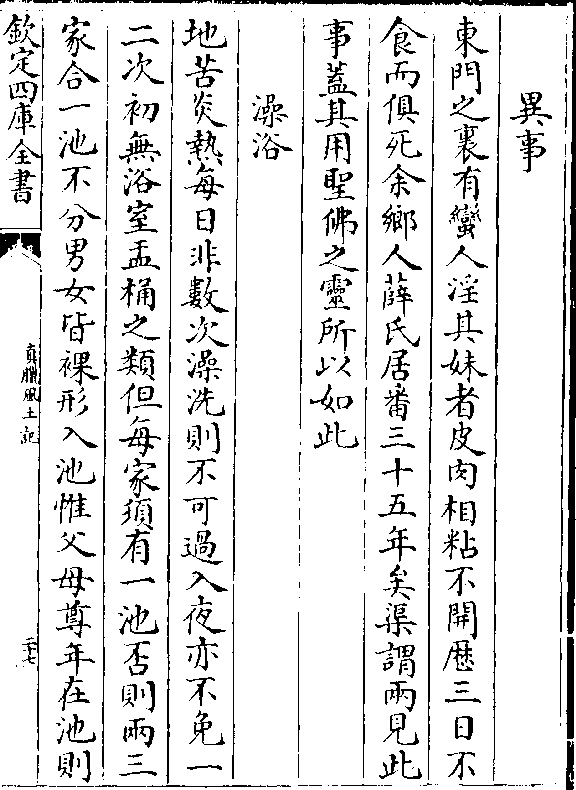 異事
東門之裏有蠻人淫其妹者皮肉相粘不開歷三日不
食而俱死余鄉人薛氏居番三十五年矣渠謂兩見此
事蓋其用聖佛之靈所以如此
澡浴
地苦炎熱每日非數次澡洗則不可過入夜亦不免一
二次初無浴室盂桶之類但每家須有一池否則兩三
家合一池不分男女皆裸形入池惟父母尊年在池則
欽定四庫全書
真臘風土記
三十七